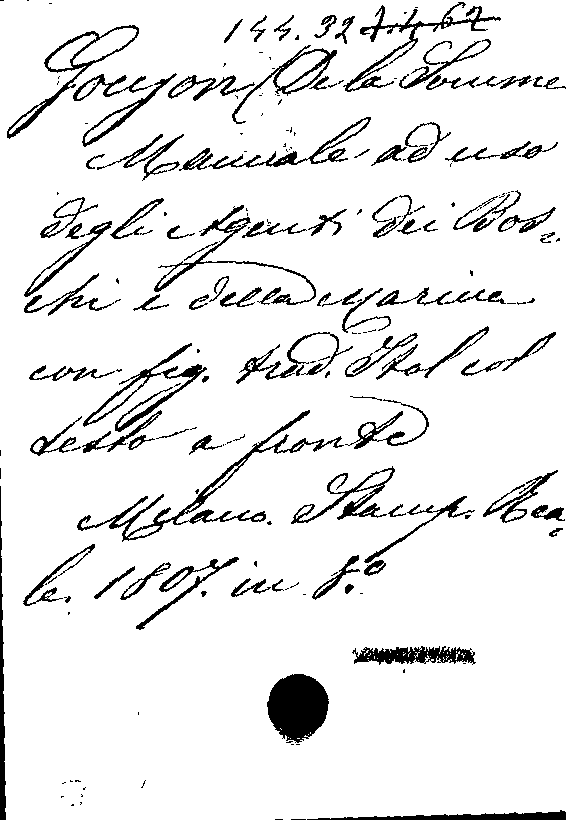 144. 32
Goujon (De la Somme
Manuale ad uso
degli Agenti dei Bos=
chi e della Marina
con fig. trad. Ital col
testo a fronte
Milano. Stamp. Rea=
le. 1807. in 8.º